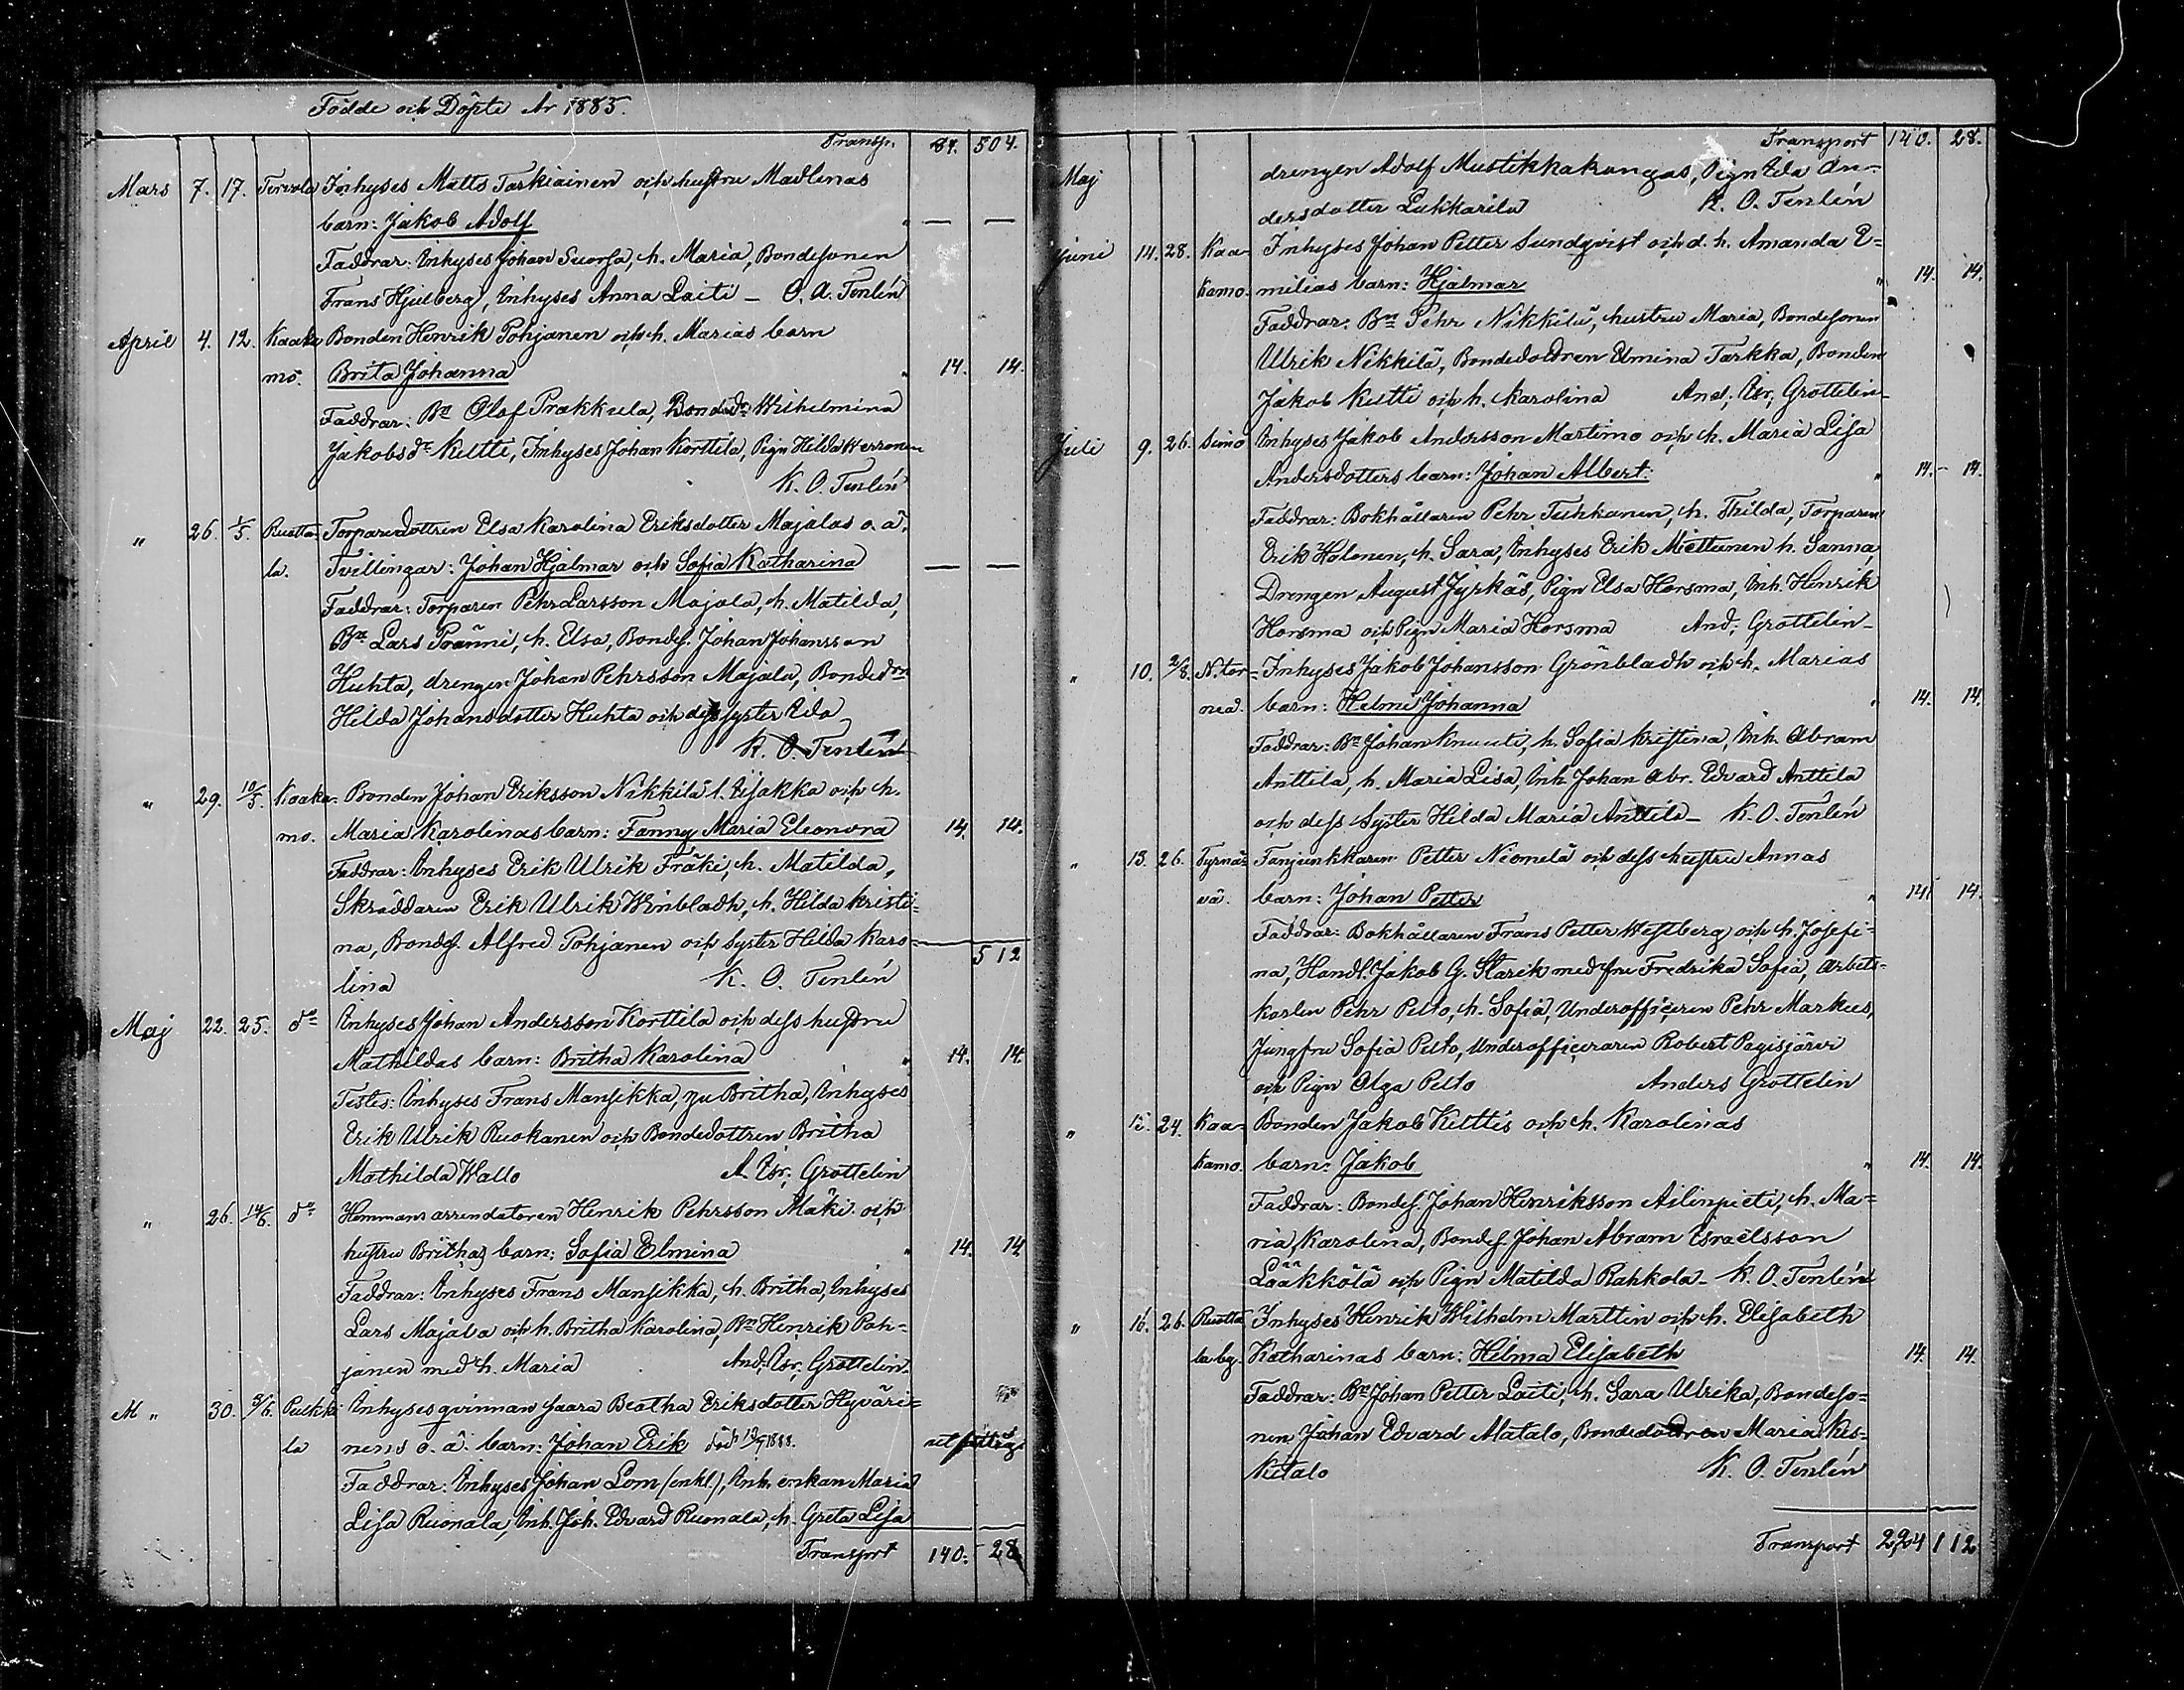 Födde och Döpte År 1885.
Transp. 84. 504.
Mars 7. 17. Tervola Inhyses Matts Tarkiainen och hustru Madlenas
barn: Jakob Adolf " — —
Faddrar: Inhyses Johan Suorsa, h. Maria, Bondesonen
Frans Hjulberg, Inhyses Anna Laiti — O. A. Tenlén
April 4. 12. Kaaka Bonden Henrik Pohjanen och h. Marias barn
mo. Brita Johanna " 14. 14.
Faddrar: Bn Olof Prakkula, Bondedr Wilhelmina
Jakobsdr Kultti, Inhyses Johan Korttila, Pign Hilda Herronen
K. O. Tenlén
" 26. 1/5. Ruotta- Torparedottren Elsa Karolina Eriksdotter Majalas o. ä.
la. Tvillingar: Johan Hjalmar och Sofia Katharina — —
Faddrar: Torparen Pehr Larsson Majala, h. Matilda,
Bn Lars Pränni, h. Elsa, Bondes. Johan Johansson
Huhta, drengen Johan Pehrsson Majala, Bondedrn
Hilda Johansdotter Huhta och dess syster Ida
K. O. Tenlén
" 29. 10/5. Kaaka- Bonden Johan Eriksson Nikkilä l. Iisakka och h.
mo. Maria Karolinas barn: Fanny Maria Eleonora 14. 14.
Faddrar: Inhyses Erik Ulrik Fräki, h. Matilda,
Skräddaren Erik Ulrik Winbladh, h. Hilda Kristi-
na, Bondes. Alfred Pohjanen och syster Hilda Karo-
512
lina K. O. Tenlén
Maj 22. 25. do Inhyses Johan Andersson Korttila och dess hustru
Mathildas barn: Britha Karolina " 14. 14.
Testes: Inhyses Frans Mansikka, hu Britha, Inhyses
Erik Ulrik Ruokanen och Bondedottren Britha
Mathilda Wallo A. Isr. Grottelin
" 26. 14/6. do Hemmansarrendatoren Henrik Pehrsson Mäki och
hustru Brithas barn: Sofia Elmina " 14. 14
Faddrar: Inhyses Frans Mansikka, h. Britha, Inhyses
Lars Majava och h. Britha Karolina, Bn Henrik Poh-
janen med h. Maria And. Isr. Grottelin.
M " 30. 9/6. Puukki- Inhysesqvinnan Saara Beatha Eriksdotter Hyväri-
la nens o. ä. barn: Johan Erik död 1888.
Faddrar: Inhyses Johan Lom (enkl.), Inh. enkan Maria
Lisa Ruonala, Inh. Joh. Edvard Ruonala, h. Greta Lisa
Transport 140. 28
Transport 140. 28.
Maj drengen Adolf Mustikkakangas, Pign Ida An-
dersdotter Lukkarila K. O. Tenlén
Juni 14. 28. Kaa- Inhyses Johan Petter Sundqvist och d. h. Amanda E-
kamo. milias barn: Hjalmar " 14. 14.
Faddrar: Bn Pehr Nikkilä, hustru Maria, Bondesonen
Ulrik Nikkilä, Bondedottren Elmina Tarkka, Bonden
Jakob Kultti och h. Karolina And. Isr. Grottelin
Juli 9. 26. Simo Inhyses Jakob Andersson Martimo och h. Maria Lisa
Andersdotters barn: Johan Albert: " 14. 14.
Faddrar: Bokhållaren Pehr Tuhkanen, h. Thilda, Torparen
Erik Halonen, h. Sara, Inhyses Erik Miettunen h. Sanna,
Drengen August Jyrkäs, Pign Elsa Horsma, Inh. Henrik
Horsma och Pign Maria Horsma And. Grottelin
" 10. 2/8. N. tor- Inhyses Jakob Johansson Grönbladh och h. Marias
neå. barn: Helmi Johanna " 14. 14.
Faddrar: Bn Johan Knuuti, h. Sofia Kristina, Inh. Abram
Anttila, h. Maria Lisa, Inh. Johan Abr. Edvard Anttila
och dess Syster Hilda Maria Anttila — K. O. Tenlén
" 13. 26. Tyrnä- Fanjunkkaren Petter Niemelä och dess hustru Annas
vä. barn: Johan Petter " 14. 14.
Faddrar: Bokhållaren Frans Petter Westberg och h. Josefi-
na, Handl. Jakob G. Starik med fru Fredrika Sofia, Arbets-
karlen Pehr Pelto, h. Sofia, Underofficeren Pehr Markus,
Jungfru Sofia Pelto, Underofficeraren Robert Pagisjärvi
och Pign Olga Pelto Anders Grottelin
" 15. 24. Kaa- Bonden Jakob Kulttis och h. Karolinas
kamo. barn: Jakob " 14. 14.
Faddrar: Bondes. Johan Henriksson Ailinpieti, h. Ma-
ria Karolina, Bondes. Johan Abram Israelsson
Lääkkölä och Pign Matilda Rahkola — K. O. Tenlén
" 16. 26. Ruotta Inhyses Henrik Wilhelm Marttin och h. Elisabeth
la by. Katharinas barn: Helma Elisabeth 14. 14.
Faddrar: Bn Johan Petter Laiti, h. Sara Ulrika, Bondeso-
nen Johan Edvard Alatalo, Bondedottren Maria Kes-
kitalo K. O. Tenlén
Transport 224 112